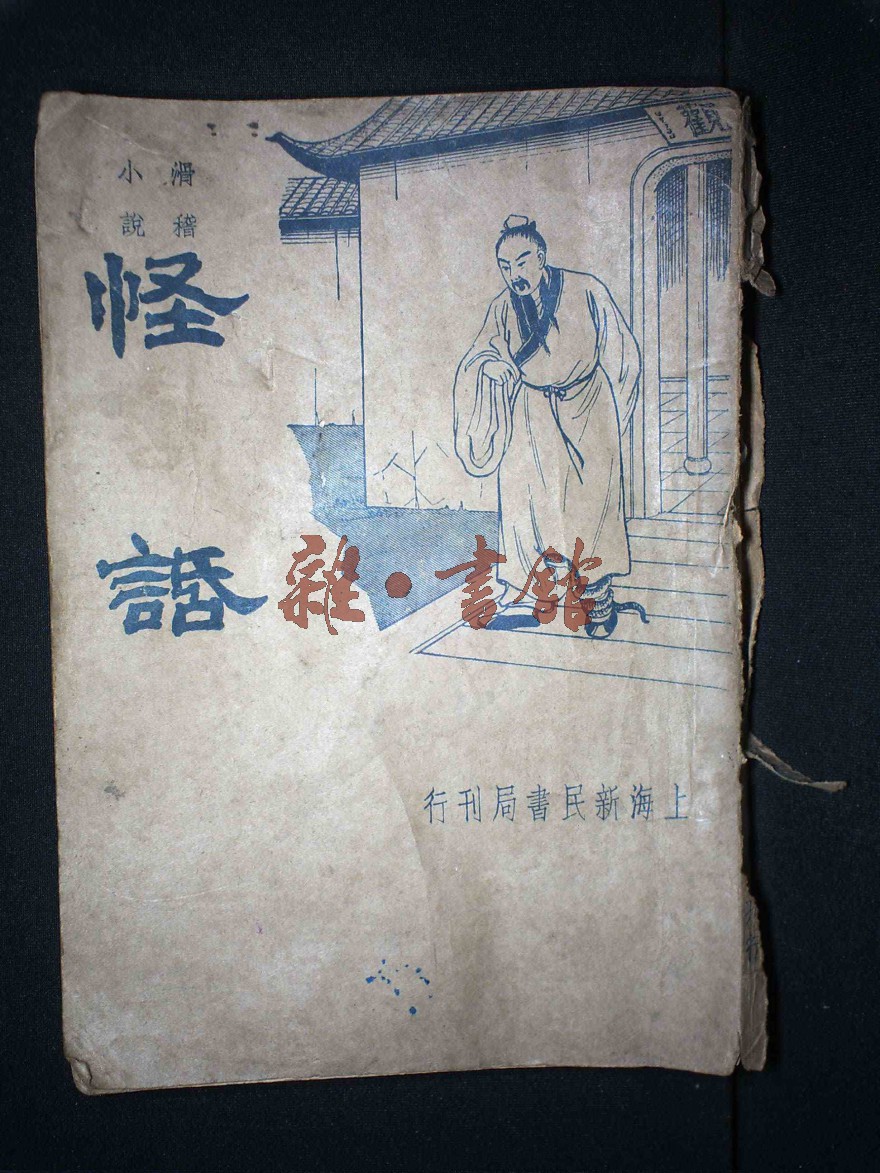 滑稽
小說
怪話
觀
雜·書館
上海新民書局刊行